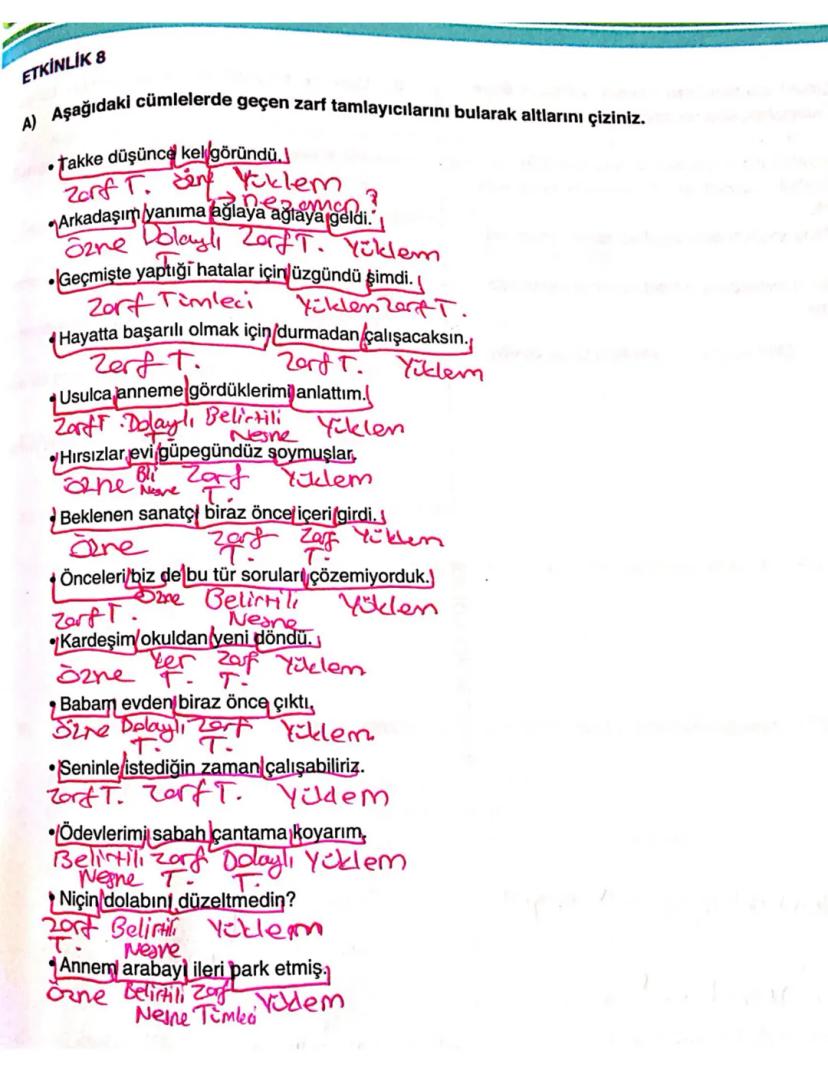 ETKİNLİK 8
A) Aşağıdaki cümlelerde geçen zarf tamlayıcılarını bularak altlarını çiziniz.
• Takke düşünce kel göründü.
Zarf T. özne Yüklem
→ ne zaman?
• Arkadaşım yanıma ağlaya ağlaya geldi.
Özne Dolaylı T. Zarf T. Yüklem
• Geçmişte yaptığı hatalar için üzgündü şimdi.
Zarf Tümleci Yüklem Zarf T.
• Hayatta başarılı olmak için durmadan çalışacaksın.
Zarf T. Zarf T. Yüklem
• Usulca anneme gördüklerimi anlattım.
Zarf T. Dolaylı Belirtili Yüklem
T. Nesne
• Hırsızlar evi güpegündüz soymuşlar.
özne Bli Zarf Yüklem
Nesne T.
• Beklenen sanatçı biraz önce içeri girdi.
Özne Zarf Zarf Yüklem
T. T.
• Önceleri biz de bu tür soruları çözemiyorduk.
Zarf T. Özne Belirtili Yüklem
Nesne
• Kardeşim okuldan yeni döndü.
Özne Yer Zarf Yüklem
T. T.
• Babam evden biraz önce çıktı.
Özne Dolaylı Zarf Yüklem.
T. T.
• Seninle istediğin zaman çalışabiliriz.
Zarf T. Zarf T. Yüklem
• Ödevlerimi sabah çantama koyarım.
Belirtili Zarf Dolaylı Yüklem
Nesne T. T.
• Niçin dolabını düzeltmedin?
Zarf Belirtili Yüklem
T. Nesne
• Annem arabayı ileri park etmiş.
Özne Belirtili Zarf Yüklem
Nesne Tümleci